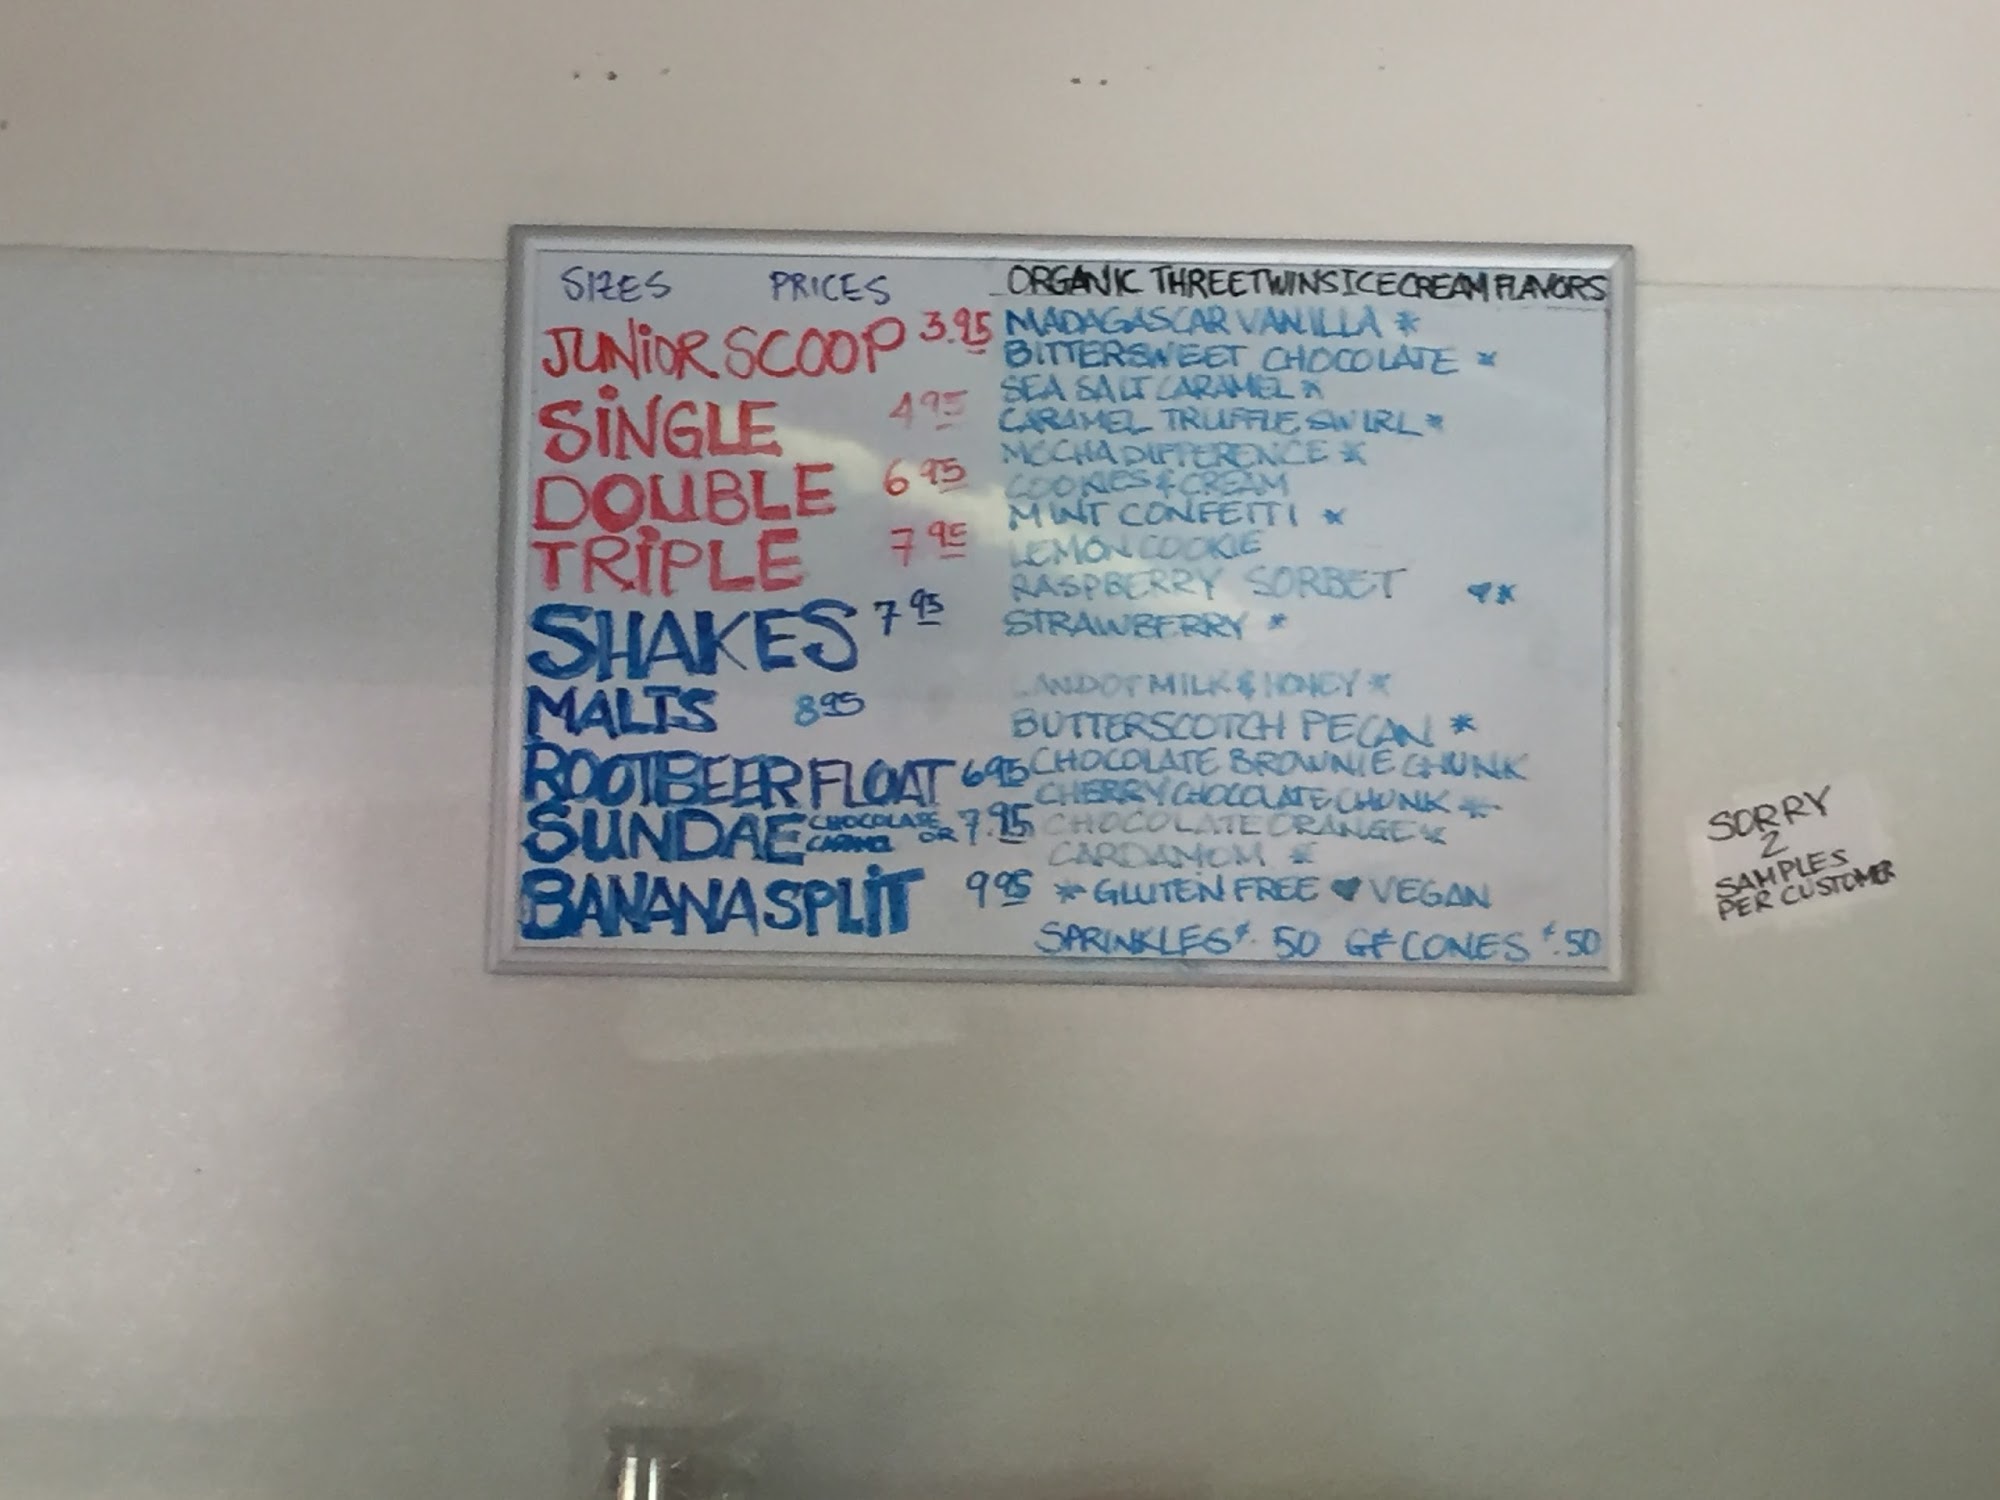 SIZES PRICES
JUNIOR SCOOP 3.95
SINGLE 4 95
DOUBLE 6 95
TRIPLE 7 95
SHAKES 7 95
MALTS 8 95
ROOTBEER FLOAT 6 95
SUNDAE CHOCOLATE OR CARAMEL 7.95
BANANA SPLIT 9 95
ORGANIC THREE TWINS ICE CREAM FLAVORS
MADAGASCAR VANILLA *
BITTERSWEET CHOCOLATE *
SEA SALT CARAMEL *
CARAMEL TRUFFLE SWIRL *
MOCHA DIFFERENCE *
COOKIES & CREAM
MINT CONFETTI *
LEMON COOKIE
RASPBERRY SORBET ♥*
STRAWBERRY *
LAND OF MILK & HONEY *
BUTTERSCOTCH PECAN *
CHOCOLATE BROWNIE CHUNK
CHERRY CHOCOLATE CHUNK *
CHOCOLATE ORANGE *
CARDAMOM *
* GLUTEN FREE ♥ VEGAN
SPRINKLES ¢.50 GF CONES ¢.50
SORRY
2
SAMPLES
PER CUSTOMER